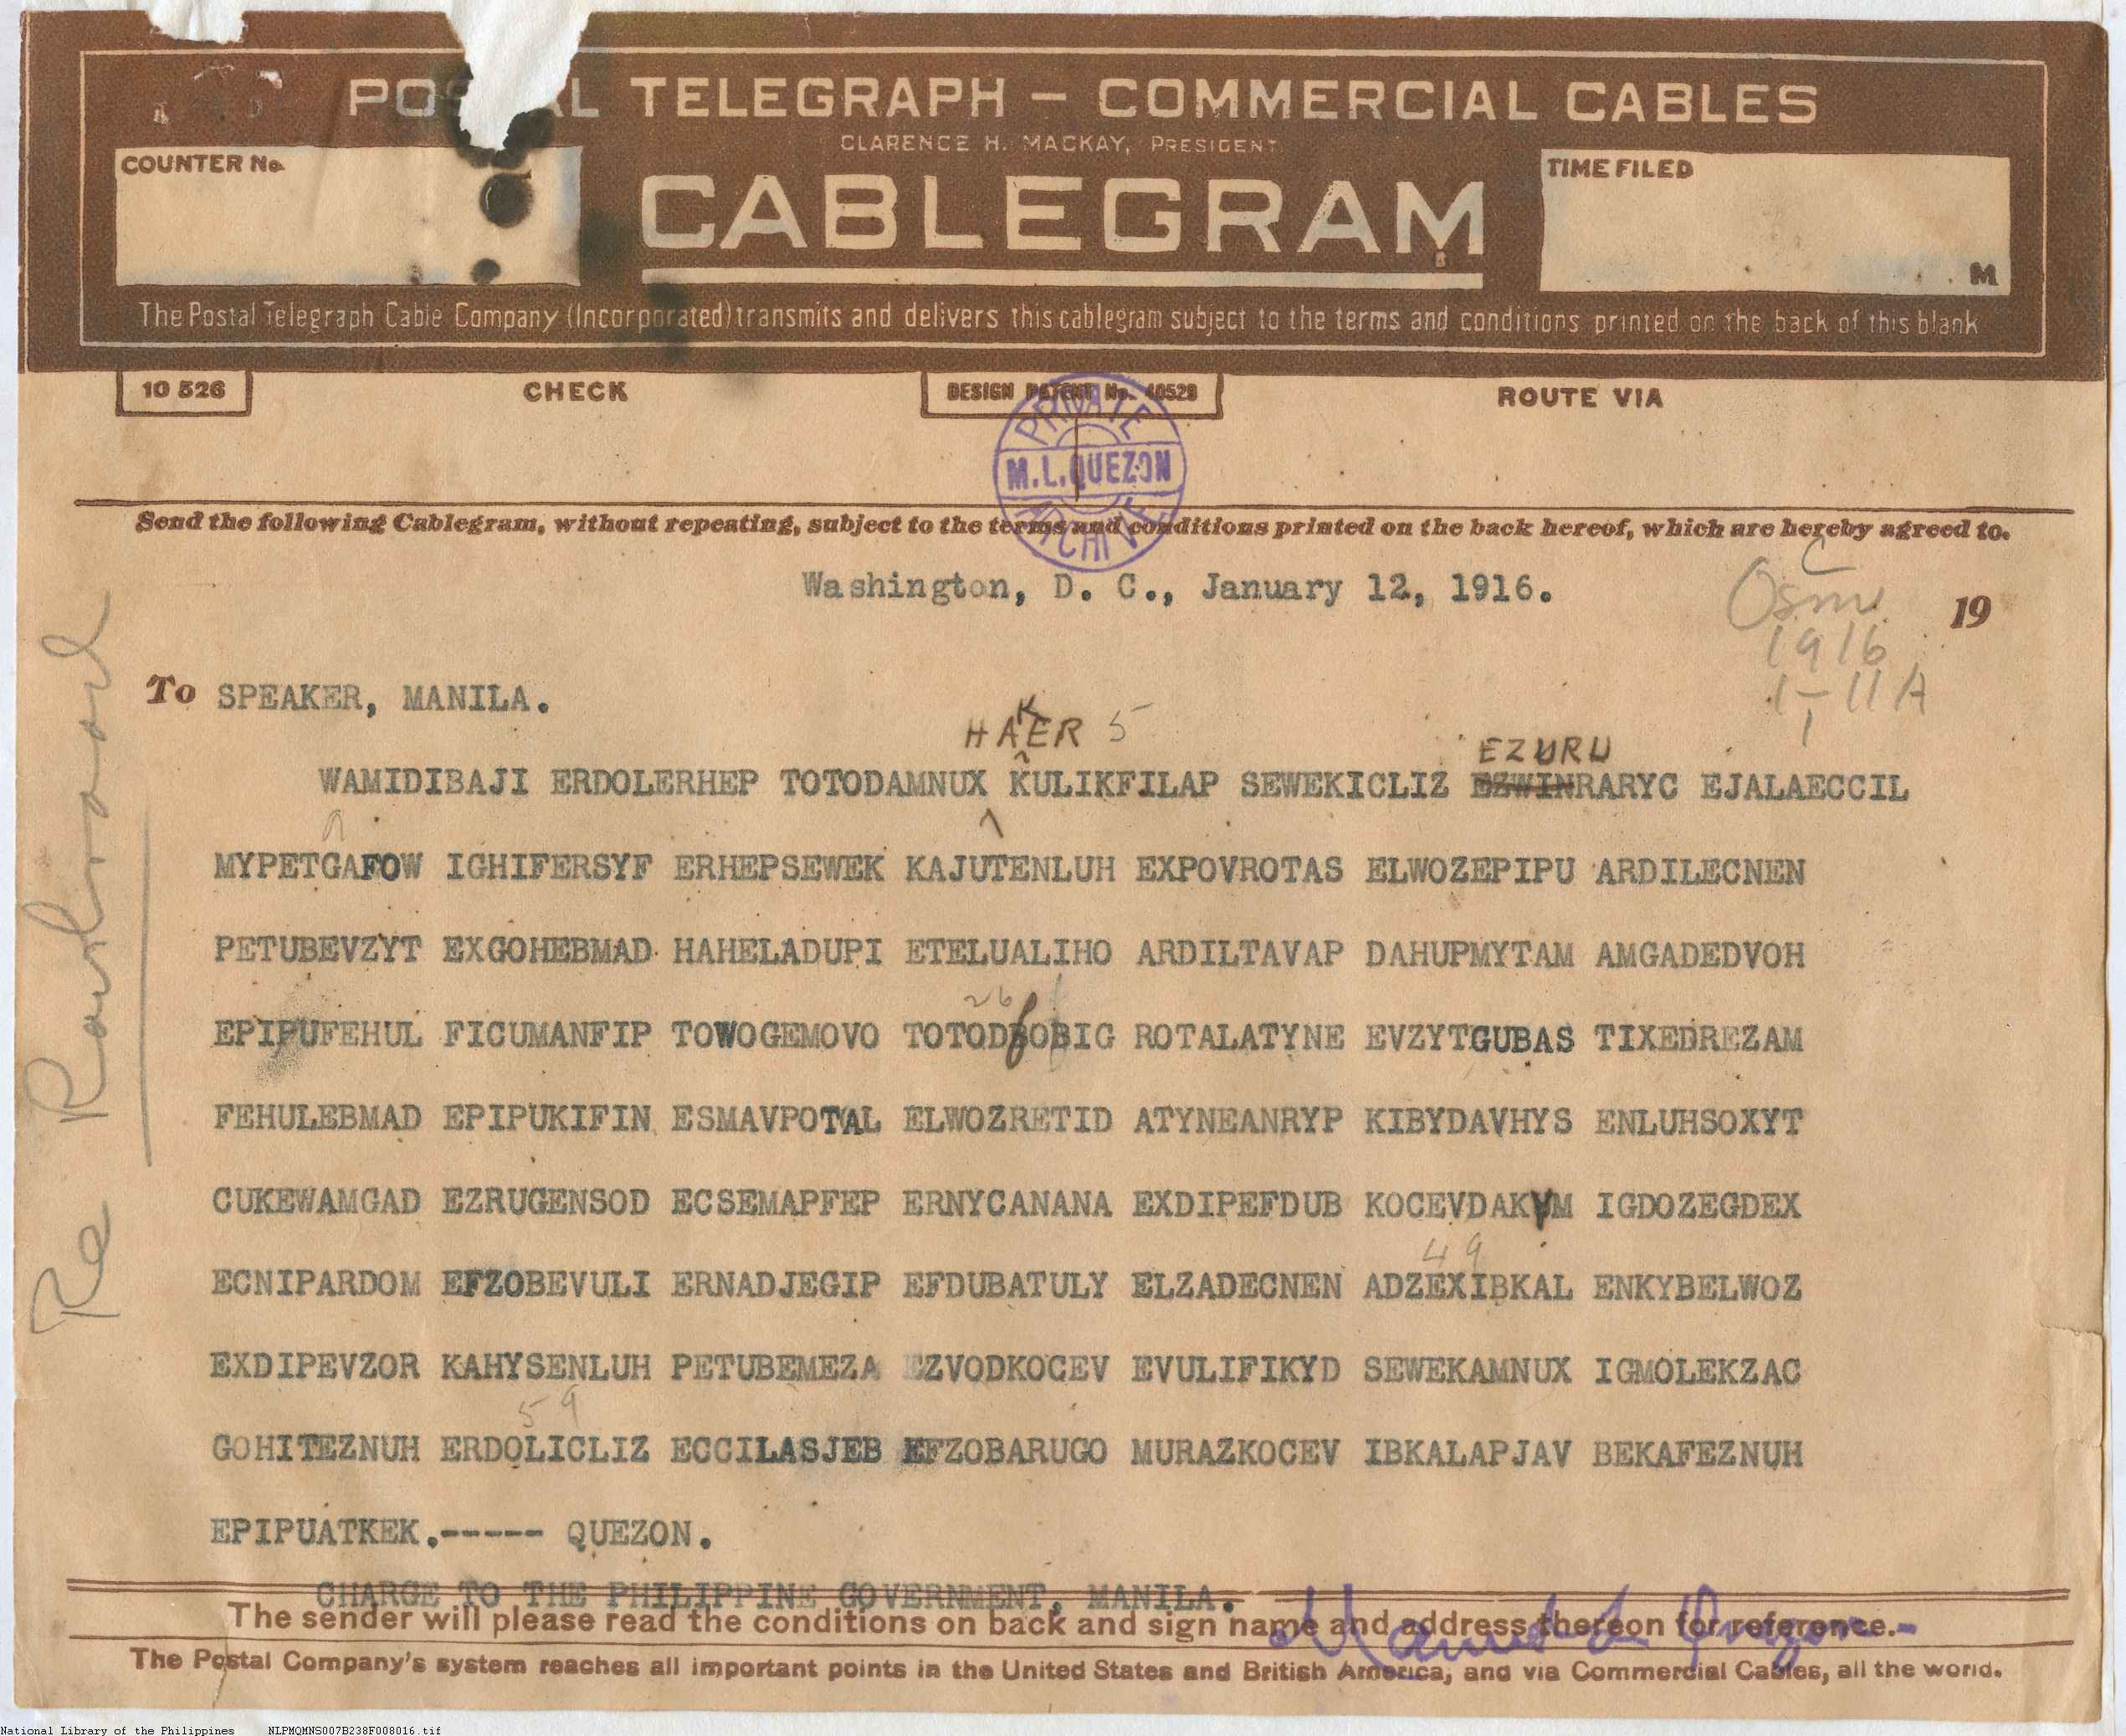 POSTAL TELEGRAPH – COMMERCIAL CABLES
CLARENCE H. MACKAY, PRESIDENT
COUNTER No
CABLEGRAM
TIME FILED
M
The Postal Telegraph Cable Company (Incorporated) transmits and delivers this cablegram subject to the terms and conditions printed on the back of this blank
10 526
CHECK
DESIGN PATENT No. 40529
ROUTE VIA
PRIVATE
M.L.QUEZON
ARCHIVE
Send the following Cablegram, without repeating, subject to the terms and conditions printed on the back hereof, which are hereby agreed to.
Washington, D. C., January 12, 1916.
19
1916
1-11A
1
To SPEAKER, MANILA.
HAKER 5
EZURU
WAMIDIBAJI ERDOLERHEP TOTODAMNUX KULIKFILAP SEWEKICLIZ EZWINRARYC EJALAECCIL
MYPETGAFOW IGHIFERSYF ERHEPSEWEK KAJUTENLUH EXPOVROTAS ELWOZEPIPU ARDILECNEN
PETUBEVZYT EXGOHEBMAD HAHELADUPI ETELUALIHO ARDILTAVAP DAHUPMYTAM AMGADEDVOH
26
EPIPUFEHUL FICUMANFIP TOWOGEMOVO TOTODFOBIG ROTALATYNE EVZYTGUBAS TIXEDREZAM
FEHULEBMAD EPIPUKIFIN ESMAVPOTAL ELWOZRETID ATYNEANRYP KIBYDAVHYS ENLUHSOXYT
CUKEWAMGAD EZRUGENSOD ECSEMAPFEP ERNYCANANA EXDIPEFDUB KOCEVDAKYM IGDOZEGDEX
49
ECNIPARDOM EFZOBEVULI ERNADJEGIP EFDUBATULY ELZADECNEN ADZEXIBKAL ENKYBELWOZ
EXDIPEVZOR KAHYSENLUH PETUBEMEZA EZVODKOCEV EVULIFIKYD SEWEKAMNUX IGMOLEKZAC
59
GOHITEZNUH ERDOLICLIZ ECCILASJEB EFZOBARUGO MURAZKOCEV IBKALAPJAV BEKAFEZNUH
EPIPUATKEK.----- QUEZON.
CHARGE TO THE PHILIPPINE GOVERNMENT, MANILA.
Manuel L Quezon
The sender will please read the conditions on back and sign name and address thereon for reference.
The Postal Company's system reaches all important points in the United States and British America, and via Commercial Cables, all the world.
Re
National Library of the Philippines NLPMQMNS007B238F008016.tif